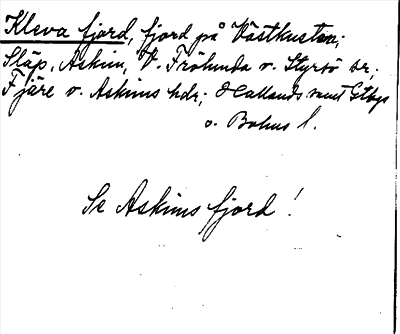 Kleva fjord, fjord på Västkusten;
Släp, Askim, V. Frölunda o. Styrsö sr;
Fjäre o. Askims hdr; Hallands samt Gtbgs
o. Bohus l.
Se Askims fjord!